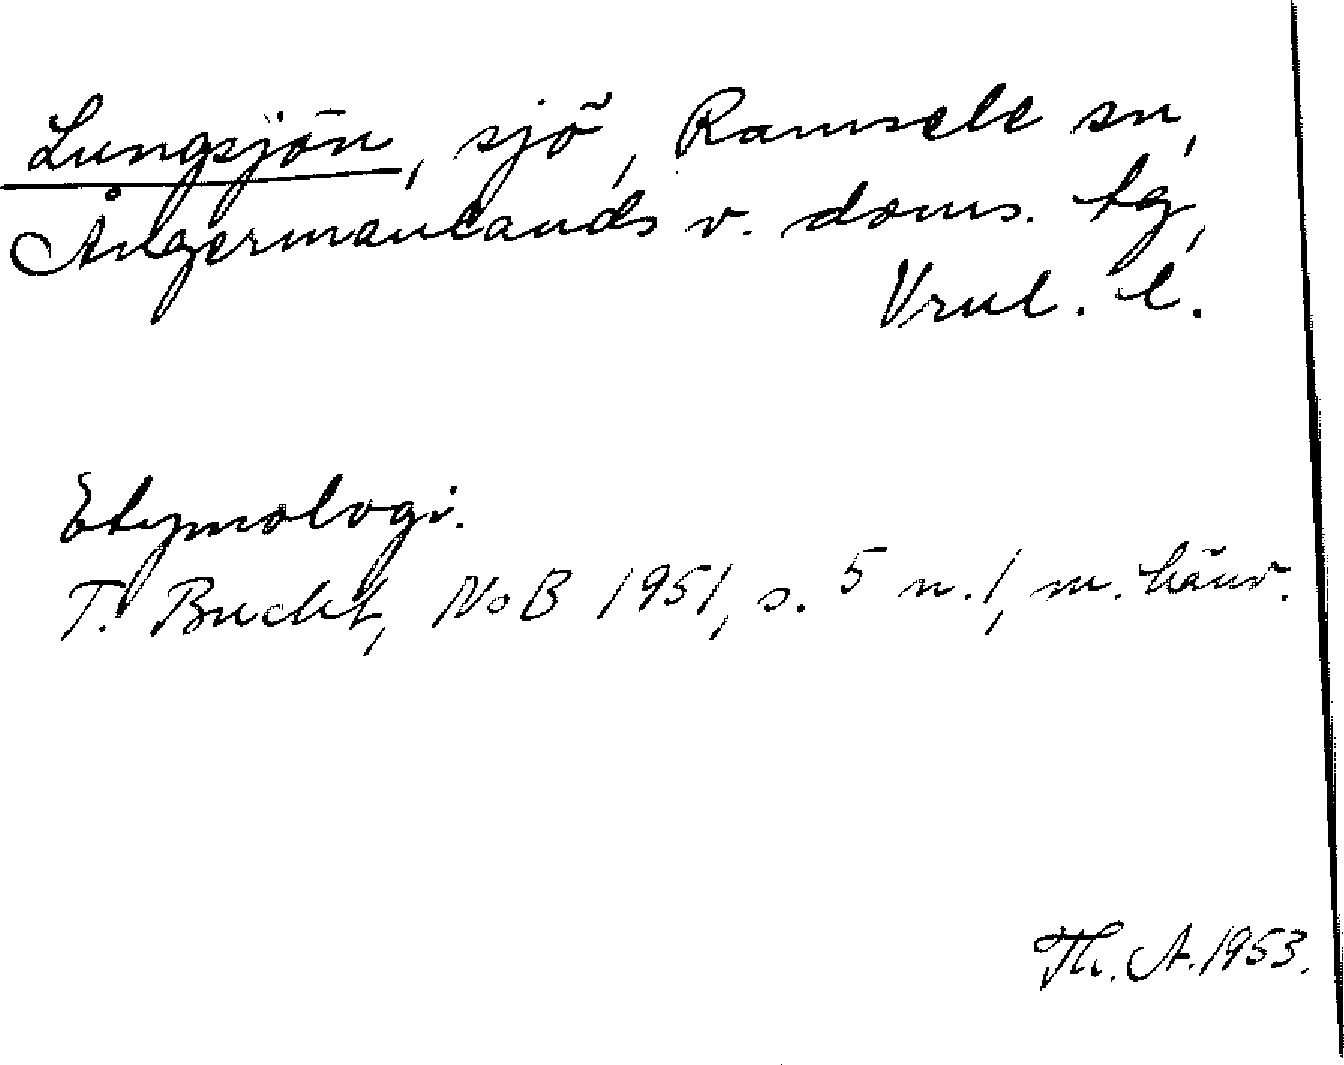 Lungsjön, sjö, Ramsele sn,
Ångermanlands v. doms. tg,
Vrnl. l.
Etymologi.
T. Bucht, NoB 1951, s. 5 n. 1, m. hänv.
Th. A. 1953.